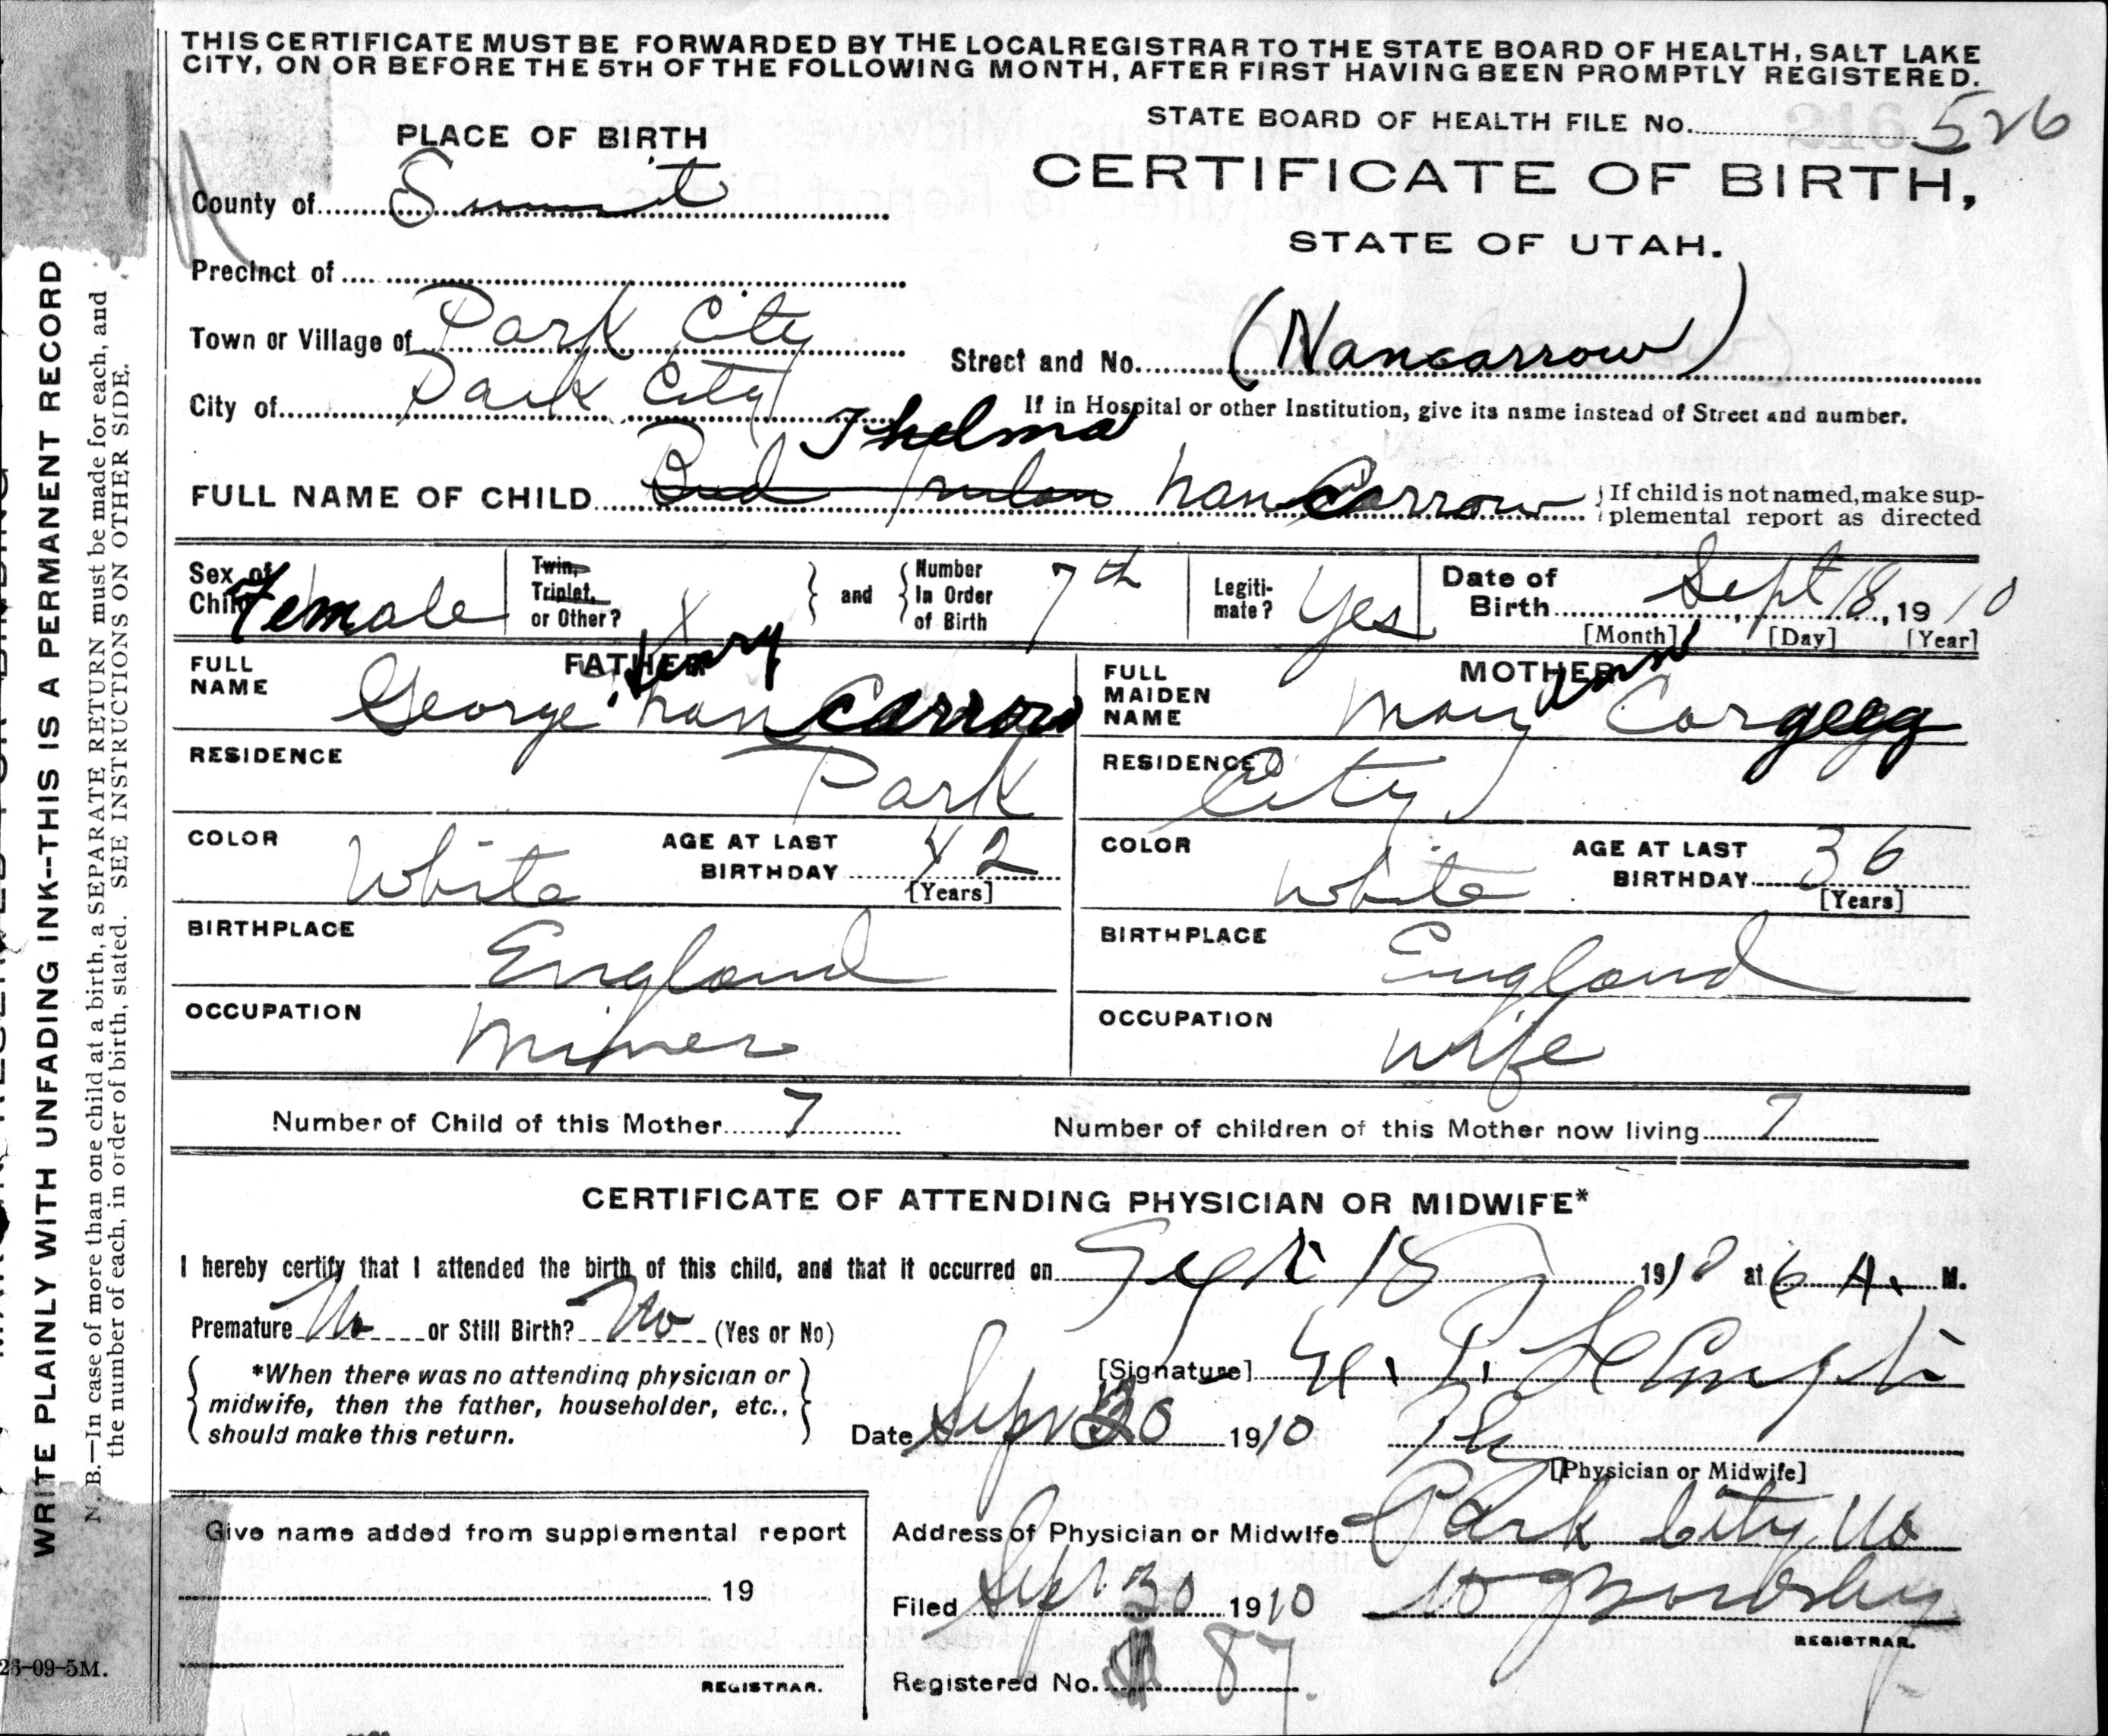 THIS CERTIFICATE MUST BE FORWARDED BY THE LOCAL REGISTRAR TO THE STATE BOARD OF HEALTH, SALT LAKE
CITY, ON OR BEFORE THE 5TH OF THE FOLLOWING MONTH, AFTER FIRST HAVING BEEN PROMPTLY REGISTERED.
STATE BOARD OF HEALTH FILE No. 526
PLACE OF BIRTH
CERTIFICATE OF BIRTH,
County of Summit
STATE OF UTAH.
Precinct of
Town or Village of Park City
Street and No. (Nancarrow)
City of Park City
If in Hospital or other Institution, give its name instead of Street and number.
Thelma
FULL NAME OF CHILD nanCarrow
If child is not named, make sup-
plemental report as directed
Sex of
Child Female
Twin,
Triplet,
or Other? X
and
Number
In Order
of Birth 7th
Legiti-
mate? Yes
Date of
Birth Sept 18, 1910
[Month] [Day] [Year]
FATHER
FULL
NAME George Henry nanCarrow
MOTHER
FULL
MAIDEN
NAME Mary Ann Corgeeg
RESIDENCE Park
RESIDENCE City
COLOR White
AGE AT LAST
BIRTHDAY 42
[Years]
COLOR White
AGE AT LAST
BIRTHDAY 36
[Years]
BIRTHPLACE England
BIRTHPLACE England
OCCUPATION Miner
OCCUPATION Wife
Number of Child of this Mother 7
Number of children of this Mother now living 7
CERTIFICATE OF ATTENDING PHYSICIAN OR MIDWIFE*
I hereby certify that I attended the birth of this child, and that it occurred on Sept 18 1910 at 6 A. M.
Premature No or Still Birth? No (Yes or No)
*When there was no attending physician or
midwife, then the father, householder, etc.,
should make this return.
[Signature]
Date Sept 30 1910
[Physician or Midwife]
Give name added from supplemental report
19
REGISTRAR.
Address of Physician or Midwife Park City
Filed Sept 30 1910
REGISTRAR.
Registered No. 87
WRITE PLAINLY WITH UNFADING INK--THIS IS A PERMANENT RECORD
N. B.—In case of more than one child at a birth, a SEPARATE RETURN must be made for each, and
the number of each, in order of birth, stated. SEE INSTRUCTIONS ON OTHER SIDE.
26-09-5M.